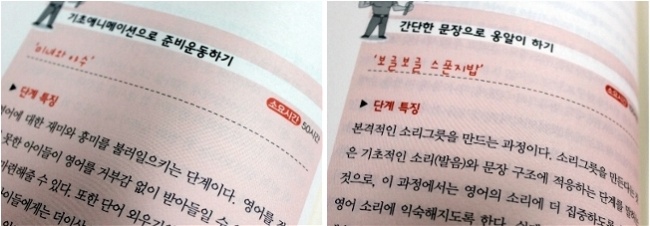 기초애니메이션으로 준비운동하기
'미녀와 야수'
소요시간 50시간
▶ 단계 특징
영어에 대한 재미와 흥미를 불러일으키는 단계이다. 영어를
못한 아이들이 영어를 거부감 없이 받아들일 수
마련해줄 수 있다. 또한 단어 외우기
아이들에게는 더이상
간단한 문장으로 옹알이 하기
'보글보글 스폰지밥'
소요시간
▶ 단계 특징
본격적인 소리그릇을 만드는 과정이다. 소리그릇을 만든다는
은 기초적인 소리(발음)와 문장 구조에 적응하는 단계를 말하
것으로, 이 과정에서는 영어의 소리에 더 집중하도록
영어 소리에 익숙해지도록 한다.